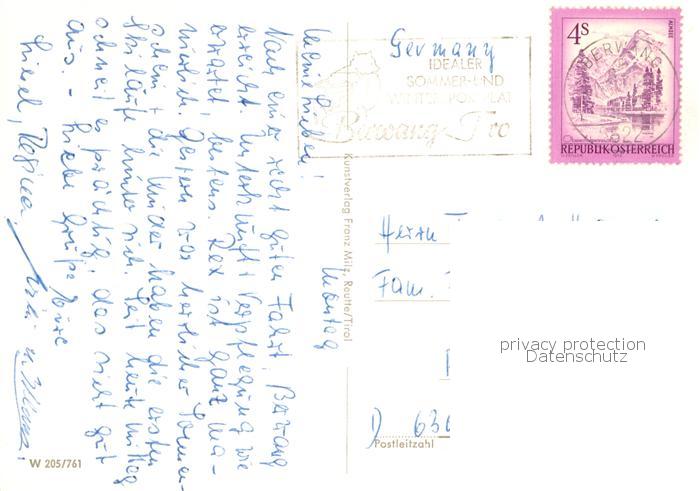 Germany
IDEALER
SOMMER-UND
WINTERSPORTPLATZ
Berwang-Tirol
BERWANG
6622
4S
ALMSEE
REPUBLIK ÖSTERREICH
Montag
Meine Lieben!
Nach einer recht guten Fahrt, Berwang
erreicht. Unterkunft & Verpflegung wie
erwartet, bestens. Rex ist ganz ma-
nierlich. Gestern war herrlicher Sonnen-
schein & die Kinder haben die ersten
Skiläufe hinter sich. Seit heute mittag
schneit es prächtig, das sieht gut
aus. - Liebe Grüße Eure
Liesel, Regina,
Kunstverlag Franz Milz, Reutte/Tirol
Herrn
Fam.
D 636
Postleitzahl
W 205/761
privacy protection
Datenschutz